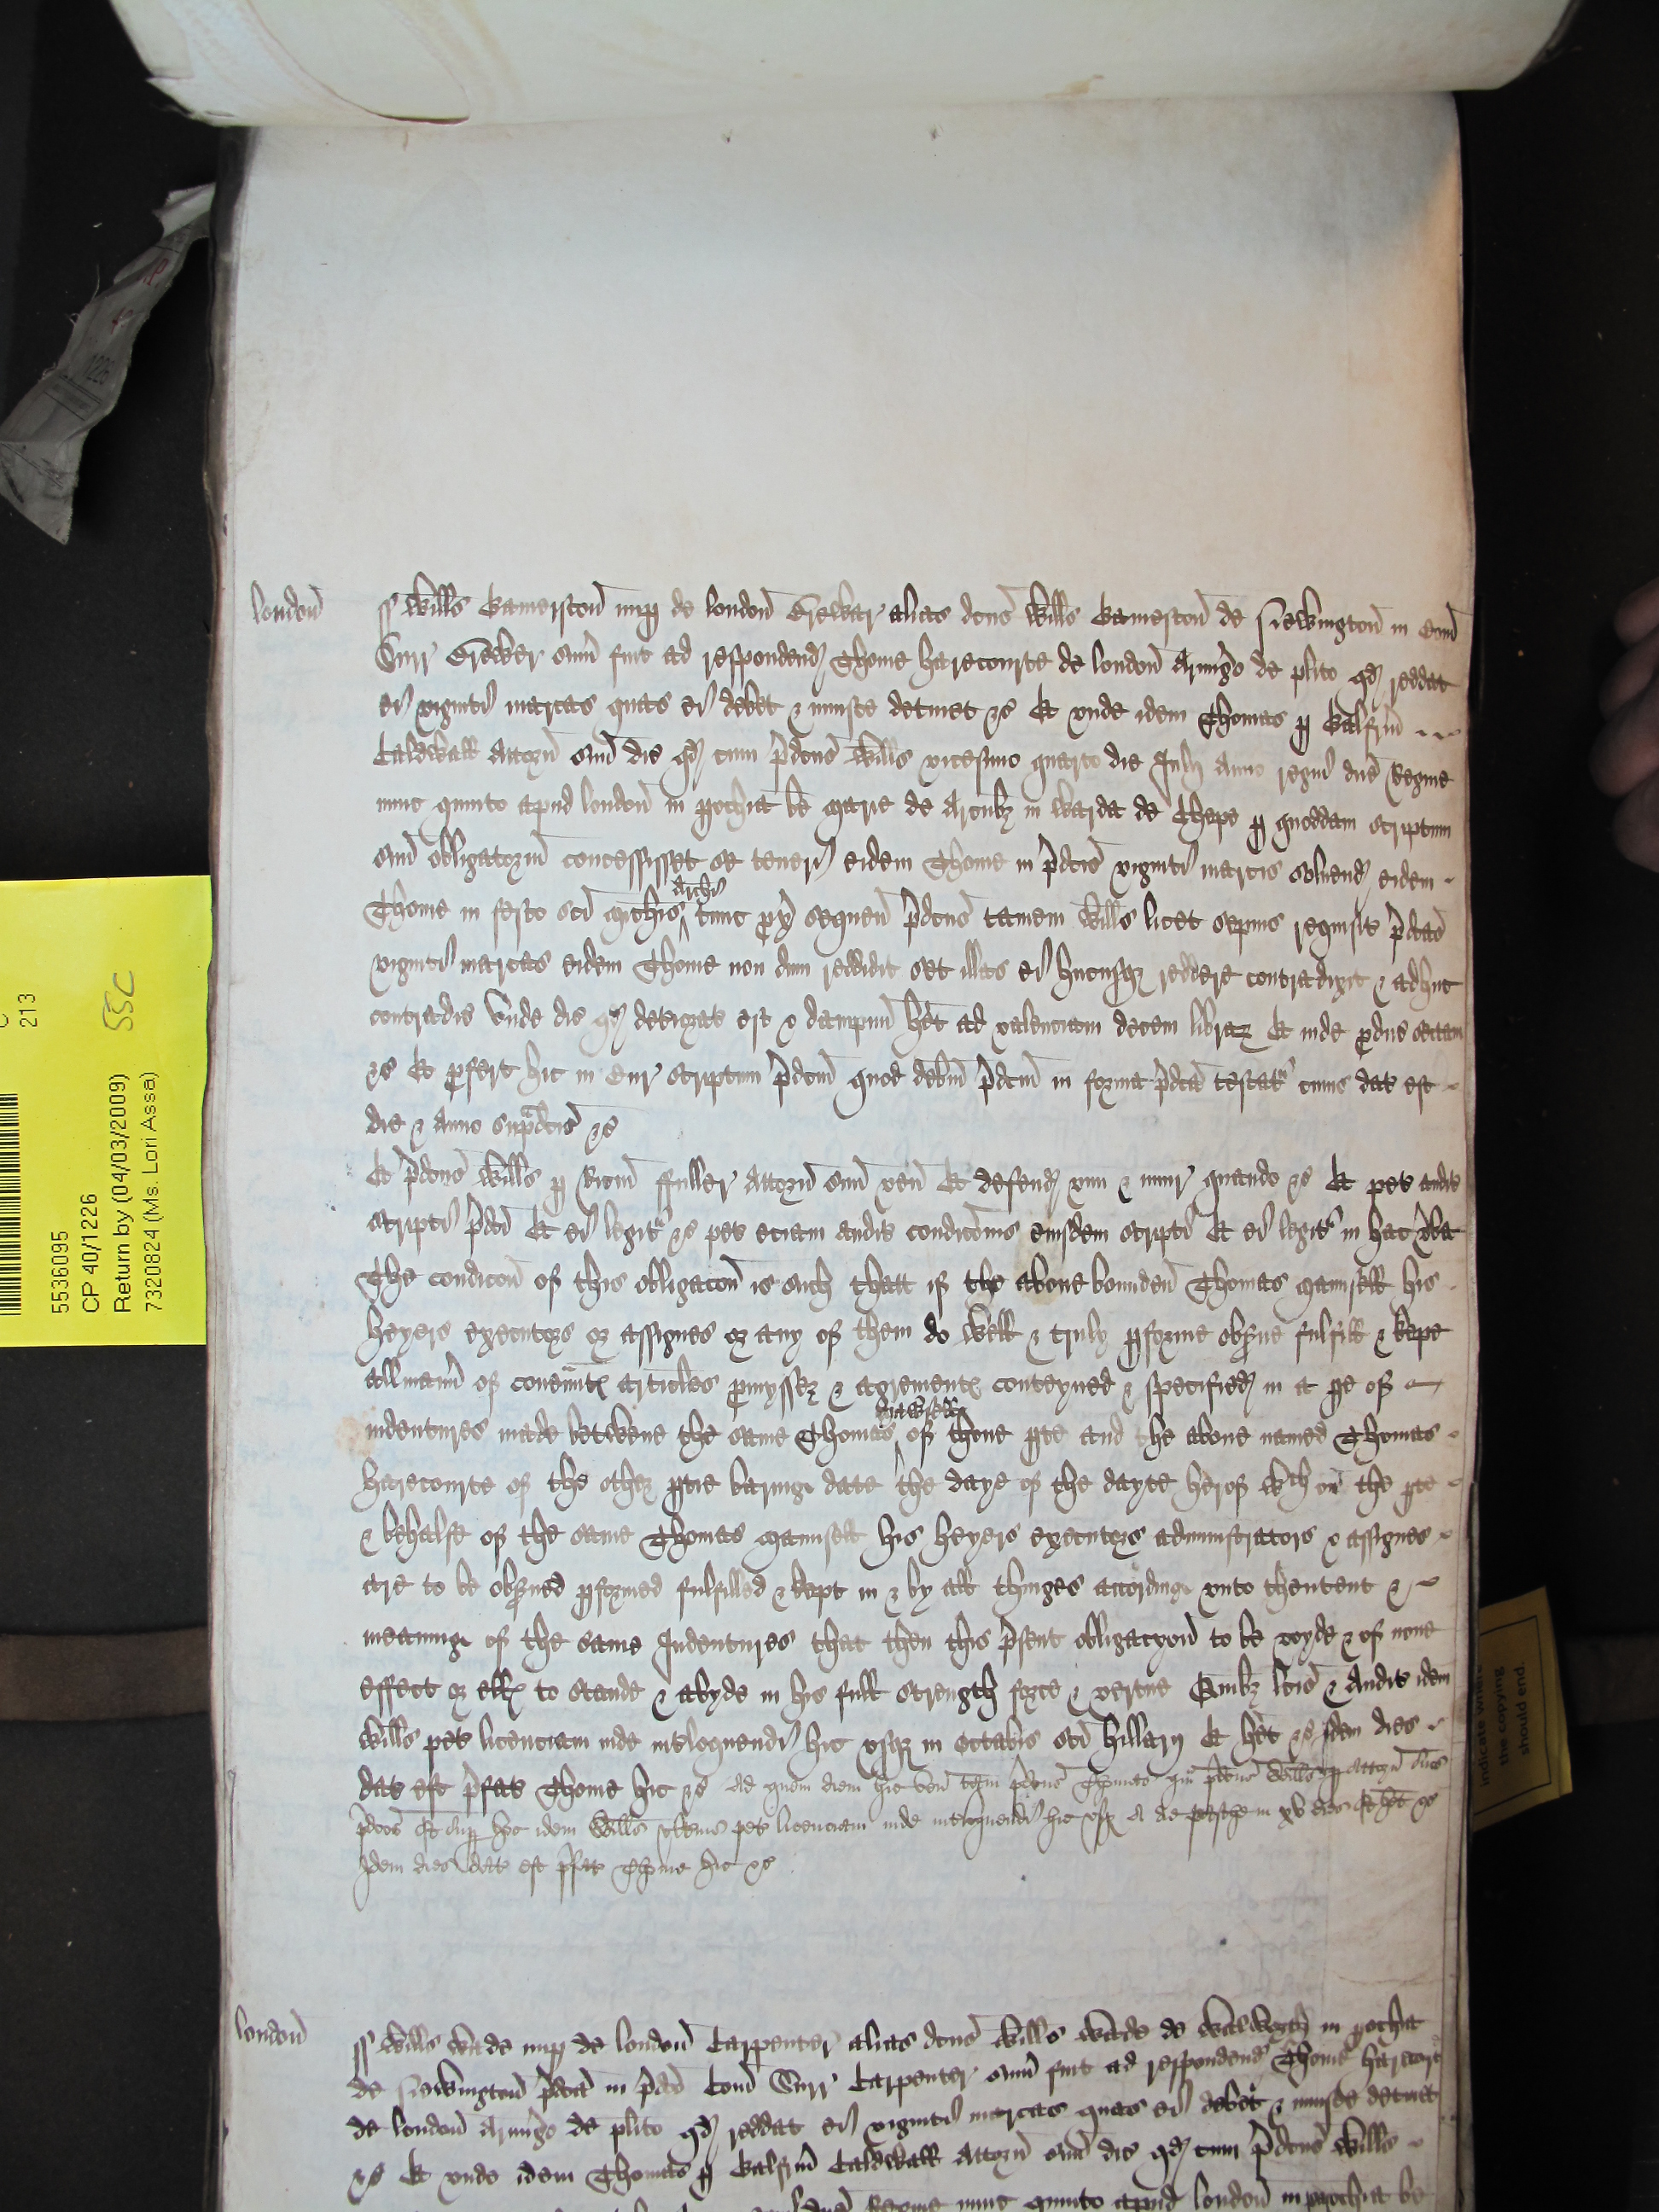 london ss Willṡ Gamerston nup de london Brewar alias dcūs Willṡ Gamerston de Newington in Com̄
Surr Brewer sum̄ fuit ad respondend Thome harecourte de london Armig̃o de plito qd reddat
ei viginti marcas quas ei debet & iniuste detinet &c Et unde idem Thomas p Galfrm̄
Caldwall Attorn̄ suū dic qd cum p̄dcūs Willṡ vicesimo quarto die Julij Anno regni dnē Regine
nunc quinto apud london in pochia bē Marie de Arcubȝ in warda de Chepe p quoddam scriptum
suū obligatoriū concessisset se teneri eidem Thome in p̄dcīs viginti marcis solvend eidem
Thome in festo scī Michīs Archi tunc p̃x sequen̄ p̄dcūs tamen Willṡ licet sepius requisit̄ p̄dcās
viginti marcas eidem Thome non dum reddidit set illas ei hucusqȝ reddere contradixit & adhuc
contradic Unde dic qd deteriorat̄ est & dampnū het ad valenciam decem librarȝ Et inde p̃duc sectam
&c Et p̃fert hic in Cur scriptum p̄dcm̄ quod debm̄ p̄dcm̄ in forma p̄dcā testat̃ cuius dat est
die & Anno sup̃dcīs &c
Et p̄dcūs Willṡ p Ricm̄ ffuller Attorn̄ suū ven̄ Et defend vim & iniur quando &c Et pet auditˉ
scripti p̄dcī Et ei legit̃ &c pet eciam auditˉ condicōnis eiusdem scripti Et ei legit̃ in hec v̄ba
The condicōn of this obligacōn is such thatt if the above bounden Thomas Maunsell his
heyers executors or assignes or any of them do well & truly pforme obs̃ve fulfill & kepe
all man̄ of coven̄nt articles p̃mysseȝ & agrement conteyned & specified in a pe of
indentures made betwene the same Thomas Mawnsell of thone pte and the above named Thomas
harecourte of the other ptie baringe date the daye of the dayte herof wch on the pte
& behalfe of the same Thomas Maunsell his heyers executors administrators & assignes
are to be obs̃ved pformed fulfilled & kept in & by all thinges accordinge unto thentent &
meaninge of the same Indentures that then this p̄sent obligacyon to be voyde & of none
effect or ell to stande & abyde in his full strength force & vertue Quibȝ lcīs & Auditˉ idem
Willṡ pet licenciam inde int̃loquendi hic usqȝ in Octabis scī Hillarij Et het &c Idem dies
dat est p̄fat Thome hic &c Ad quem diem hic ven̄ tam p̄dcūs Thomas qm̄ p̄dcūs Willṡ p Attorn̄ suos
p̄dcōs Et sup hoc idem Willṡ ulterius pet licenciam inde int̃loquendi hic usqȝ a die Pasche in xv dies Et het &c
Idem dies dat est p̄fat Thome hic &c
london ss Willṡ Wade nup de london Carpenter alias dcūs Willṡ Wade de Walworth in pochia
de Newington p̄dcā in p̄dcō Com̄ Surr Carpenter sum̄ fuit ad respondend Thome harecort
de london Armig̃o de plito qd reddat ei viginti marcas quas ei debet & iniuste detinet
&c Et unde idem Thomas p Galfrm̄ Caldwall Attorn̄ suū dic qd cum p̄dcūs Willṡ
Regine nunc quinto apud london in pochia bē
5536095
CP 40/1226
Return by (04/03/2009)
7320824 (Ms. Lori Assa)
213
SSC
1226
indicate where
the copying
should end.